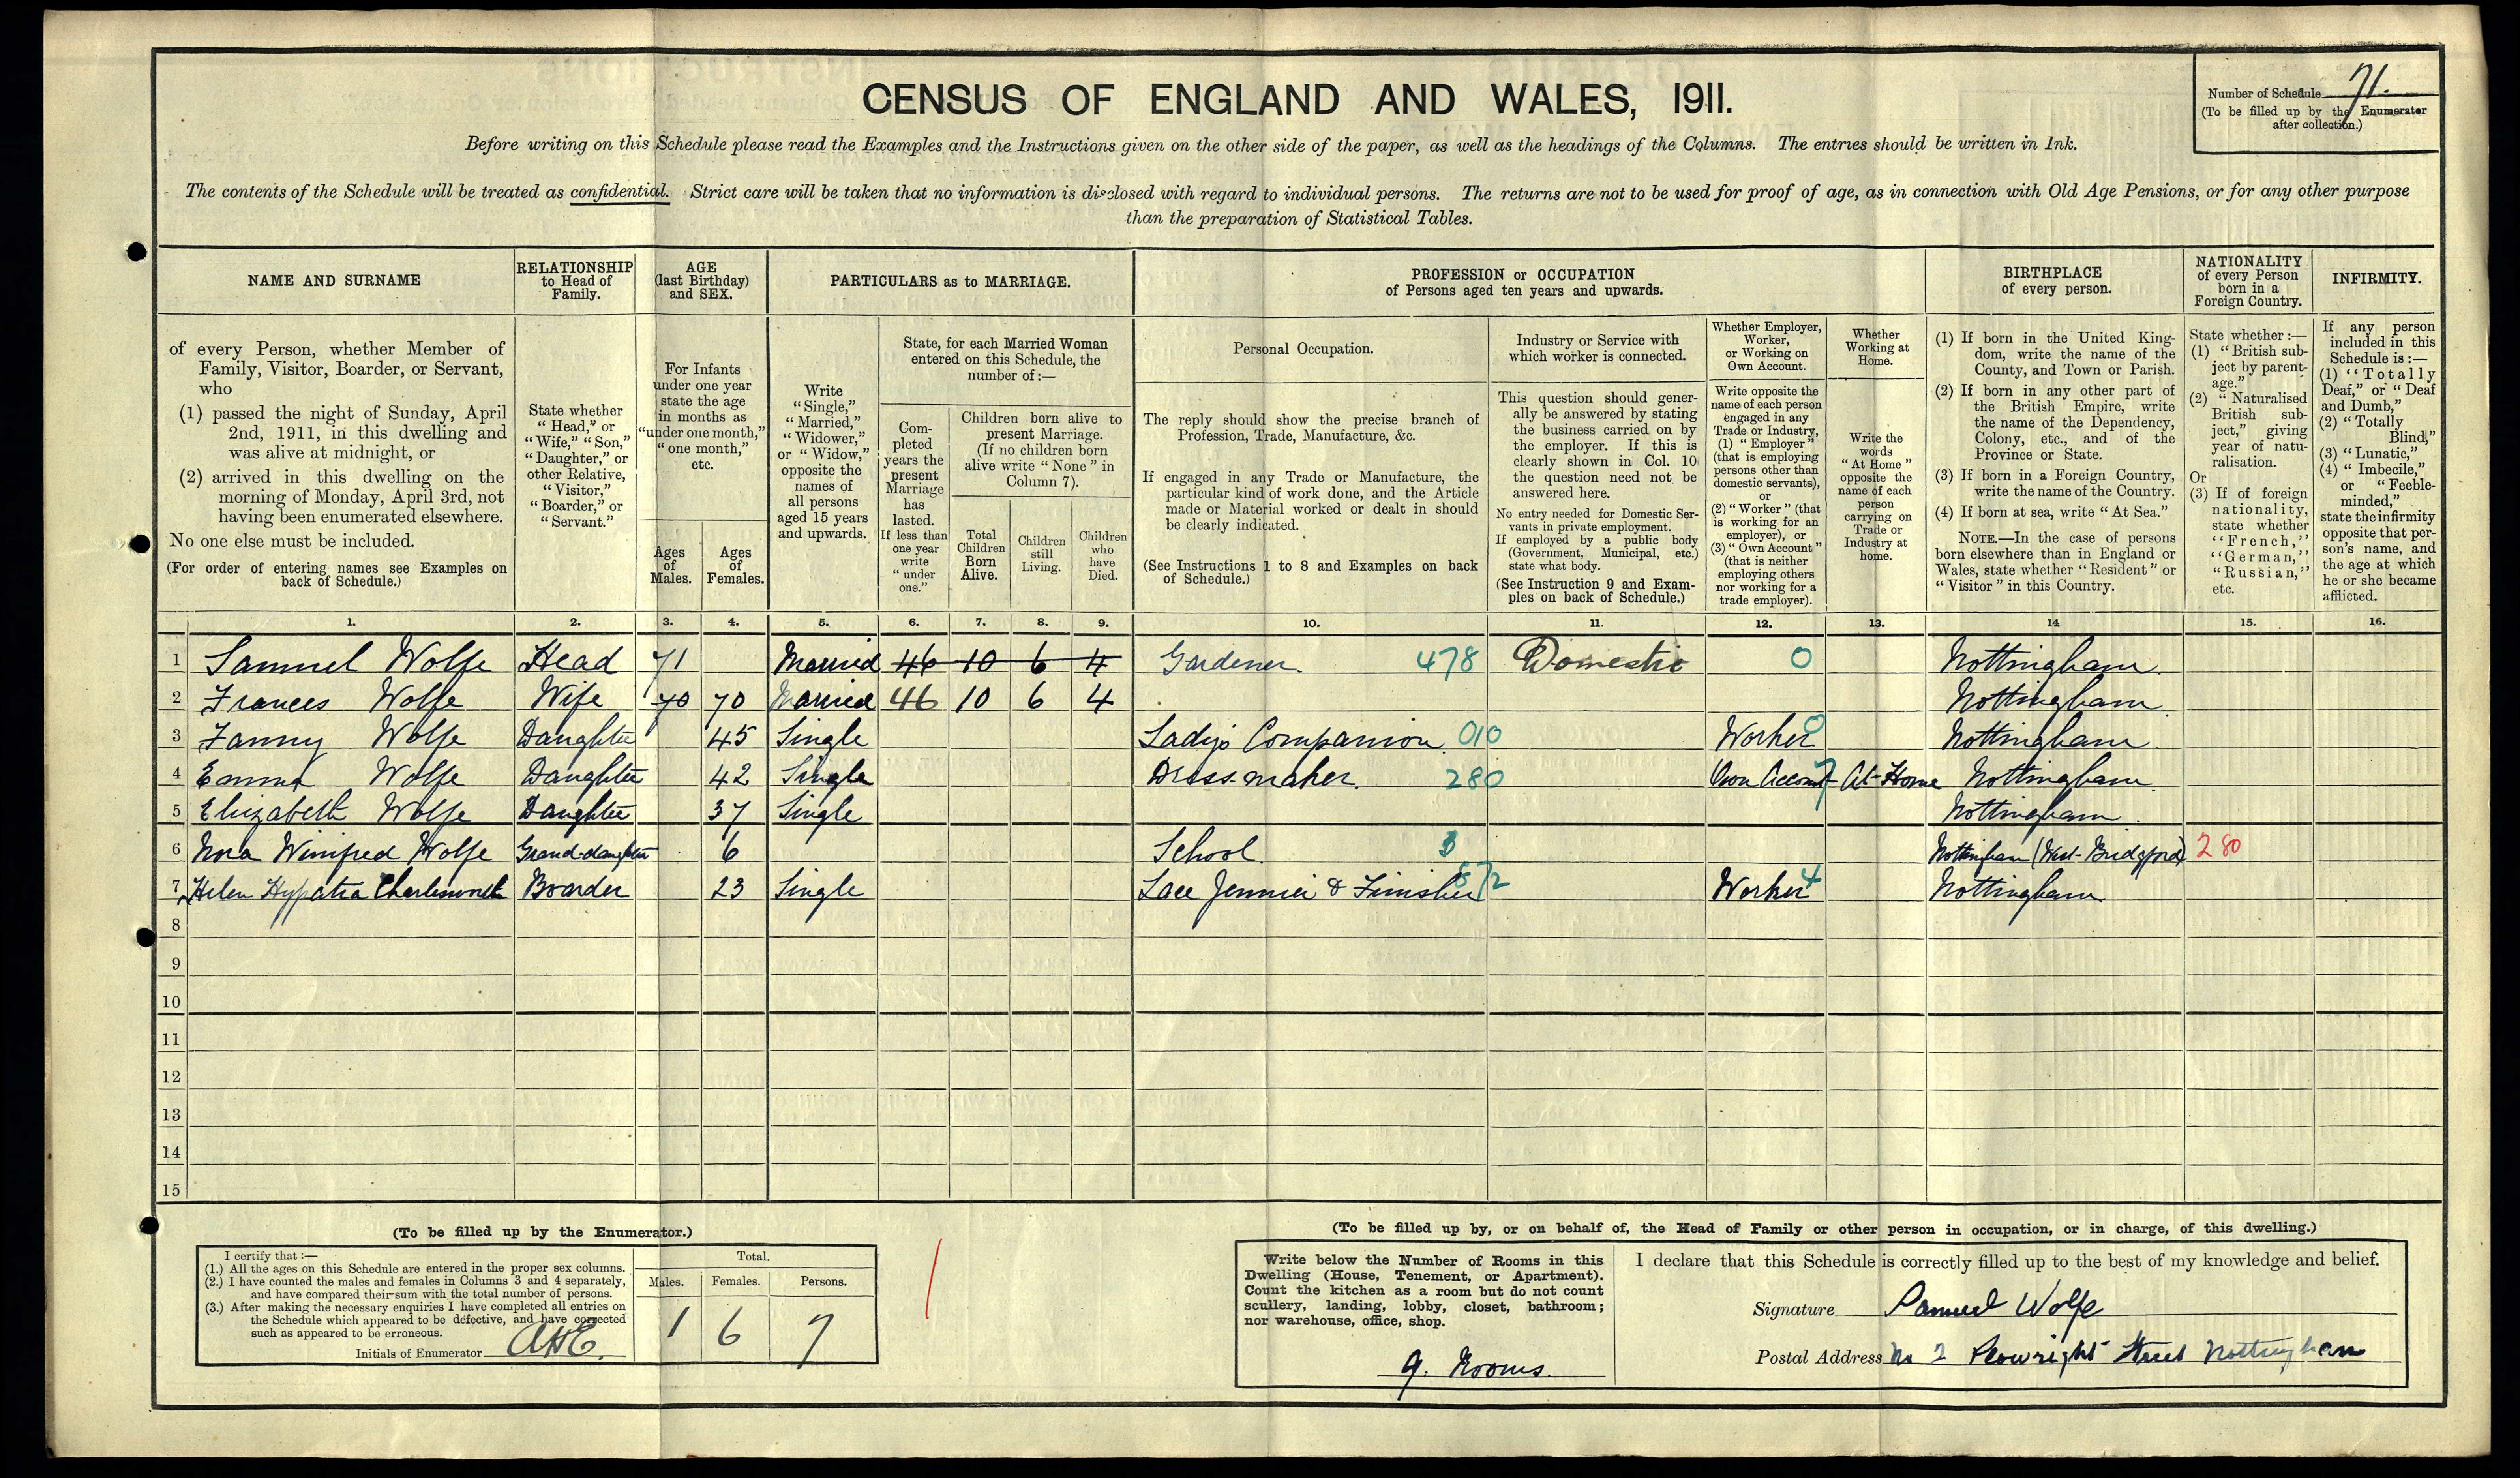 CENSUS OF ENGLAND AND WALES, 1911.
Number of Schedule 71.
(To be filled up by the Enumerator
after collection.)
Before writing on this Schedule please read the Examples and the Instructions given on the other side of the paper, as well as the headings of the Columns. The entries should be written in Ink.
The contents of the Schedule will be treated as confidential. Strict care will be taken that no information is disclosed with regard to individual persons. The returns are not to be used for proof of age, as in connection with Old Age Pensions, or for any other purpose
than the preparation of Statistical Tables.
NAME AND SURNAME
of every Person, whether Member of
Family, Visitor, Boarder, or Servant,
who
(1) passed the night of Sunday, April
2nd, 1911, in this dwelling and
was alive at midnight, or
(2) arrived in this dwelling on the
morning of Monday, April 3rd, not
having been enumerated elsewhere.
No one else must be included.
(For order of entering names see Examples on
back of Schedule.)
RELATIONSHIP
to Head of
Family.
State whether
"Head," or
"Wife," "Son,"
"Daughter," or
other Relative,
"Visitor,"
"Boarder," or
"Servant."
AGE
(last Birthday)
and SEX.
For Infants
under one year
state the age
in months as
"under one month,"
"one month,"
etc.
Ages
of
Males.
Ages
of
Females.
PARTICULARS as to MARRIAGE.
Write
"Single,"
"Married,"
"Widower,"
or "Widow,"
opposite the
names of
all persons
aged 15 years
and upwards.
State, for each Married Woman
entered on this Schedule, the
number of:—
Com-
pleted
years the
present
Marriage
has
lasted.
If less than
one year
write
"under
one."
Children born alive to
present Marriage.
(If no children born
alive write "None" in
Column 7).
Total
Children
Born
Alive.
Children
still
Living.
Children
who
have
Died.
PROFESSION or OCCUPATION
of Persons aged ten years and upwards.
Personal Occupation.
The reply should show the precise branch of
Profession, Trade, Manufacture, &c.
If engaged in any Trade or Manufacture, the
particular kind of work done, and the Article
made or Material worked or dealt in should
be clearly indicated.
(See Instructions 1 to 8 and Examples on back
of Schedule.)
Industry or Service with
which worker is connected.
This question should gener-
ally be answered by stating
the business carried on by
the employer. If this is
clearly shown in Col. 10
the question need not be
answered here.
No entry needed for Domestic Ser-
vants in private employment.
If employed by a public body
(Government, Municipal, etc.)
state what body.
(See Instruction 9 and Exam-
ples on back of Schedule.)
Whether Employer,
Worker,
or Working on
Own Account.
Write opposite the
name of each person
engaged in any
Trade or Industry,
(1) "Employer"
(that is employing
persons other than
domestic servants),
or
(2) "Worker" (that
is working for an
employer), or
(3) "Own Account"
(that is neither
employing others
nor working for a
trade employer).
Whether
Working at
Home.
Write the
words
"At Home"
opposite the
name of each
person
carrying on
Trade or
Industry at
home.
BIRTHPLACE
of every person.
(1) If born in the United King-
dom, write the name of the
County, and Town or Parish.
(2) If born in any other part of
the British Empire, write
the name of the Dependency,
Colony, etc., and of the
Province or State.
(3) If born in a Foreign Country,
write the name of the Country.
(4) If born at sea, write "At Sea."
NOTE.—In the case of persons
born elsewhere than in England or
Wales, state whether "Resident" or
"Visitor" in this Country.
NATIONALITY
of every Person
born in a
Foreign Country.
State whether:—
(1) "British sub-
ject by parent-
age."
(2) "Naturalised
British sub-
ject," giving
year of natu-
ralisation.
Or
(3) If of foreign
nationality,
state whether
"French,"
"German,"
"Russian,"
etc.
INFIRMITY.
If any person
included in this
Schedule is:—
(1) "Totally
Deaf," or "Deaf
and Dumb,"
(2) "Totally
Blind,"
(3) "Lunatic,"
(4) "Imbecile,"
or "Feeble-
minded,"
state the infirmity
opposite that per-
son's name, and
the age at which
he or she became
afflicted.
1. 2. 3. 4. 5. 6. 7. 8. 9. 10. 11. 12. 13. 14 15. 16.
1 Samuel Wolfe Head 71 Married 46 10 6 4 Gardener. 478 Domestic 0 Nottingham.
2 Frances Wolfe Wife 70 70 Married 46 10 6 4 Nottingham
3 Fanny Wolfe Daughter 45 Single Ladys Companion 010 Worker 0 Nottingham.
4 Emma Wolfe Daughter 42 Single Dress-maker. 280 Own Account 7 At Home Nottingham.
5 Elizabeth Wolfe Daughter 37 Single Nottingham.
6 Nora Winifred Wolfe Grand-daughter 6 School. 3 Nottingham (West-Bridgford) 280
7 Helen Hypatia Charlesworth Boarder 23 Single Lace Jennier & Finisher 872 Worker 4 Nottingham.
8
9
10
11
12
13
14
15
(To be filled up by the Enumerator.)
I certify that:—
(1.) All the ages on this Schedule are entered in the proper sex columns.
(2.) I have counted the males and females in Columns 3 and 4 separately,
and have compared their sum with the total number of persons.
(3.) After making the necessary enquiries I have completed all entries on
the Schedule which appeared to be defective, and have corrected
such as appeared to be erroneous.
Initials of Enumerator
Total.
Males. Females. Persons.
1 6 7
(To be filled up by, or on behalf of, the Head of Family or other person in occupation, or in charge, of this dwelling.)
Write below the Number of Rooms in this
Dwelling (House, Tenement, or Apartment).
Count the kitchen as a room but do not count
scullery, landing, lobby, closet, bathroom;
nor warehouse, office, shop.
9. Rooms.
I declare that this Schedule is correctly filled up to the best of my knowledge and belief.
Signature Samuel Wolfe
Postal Address No 2 Plowright Street Nottingham